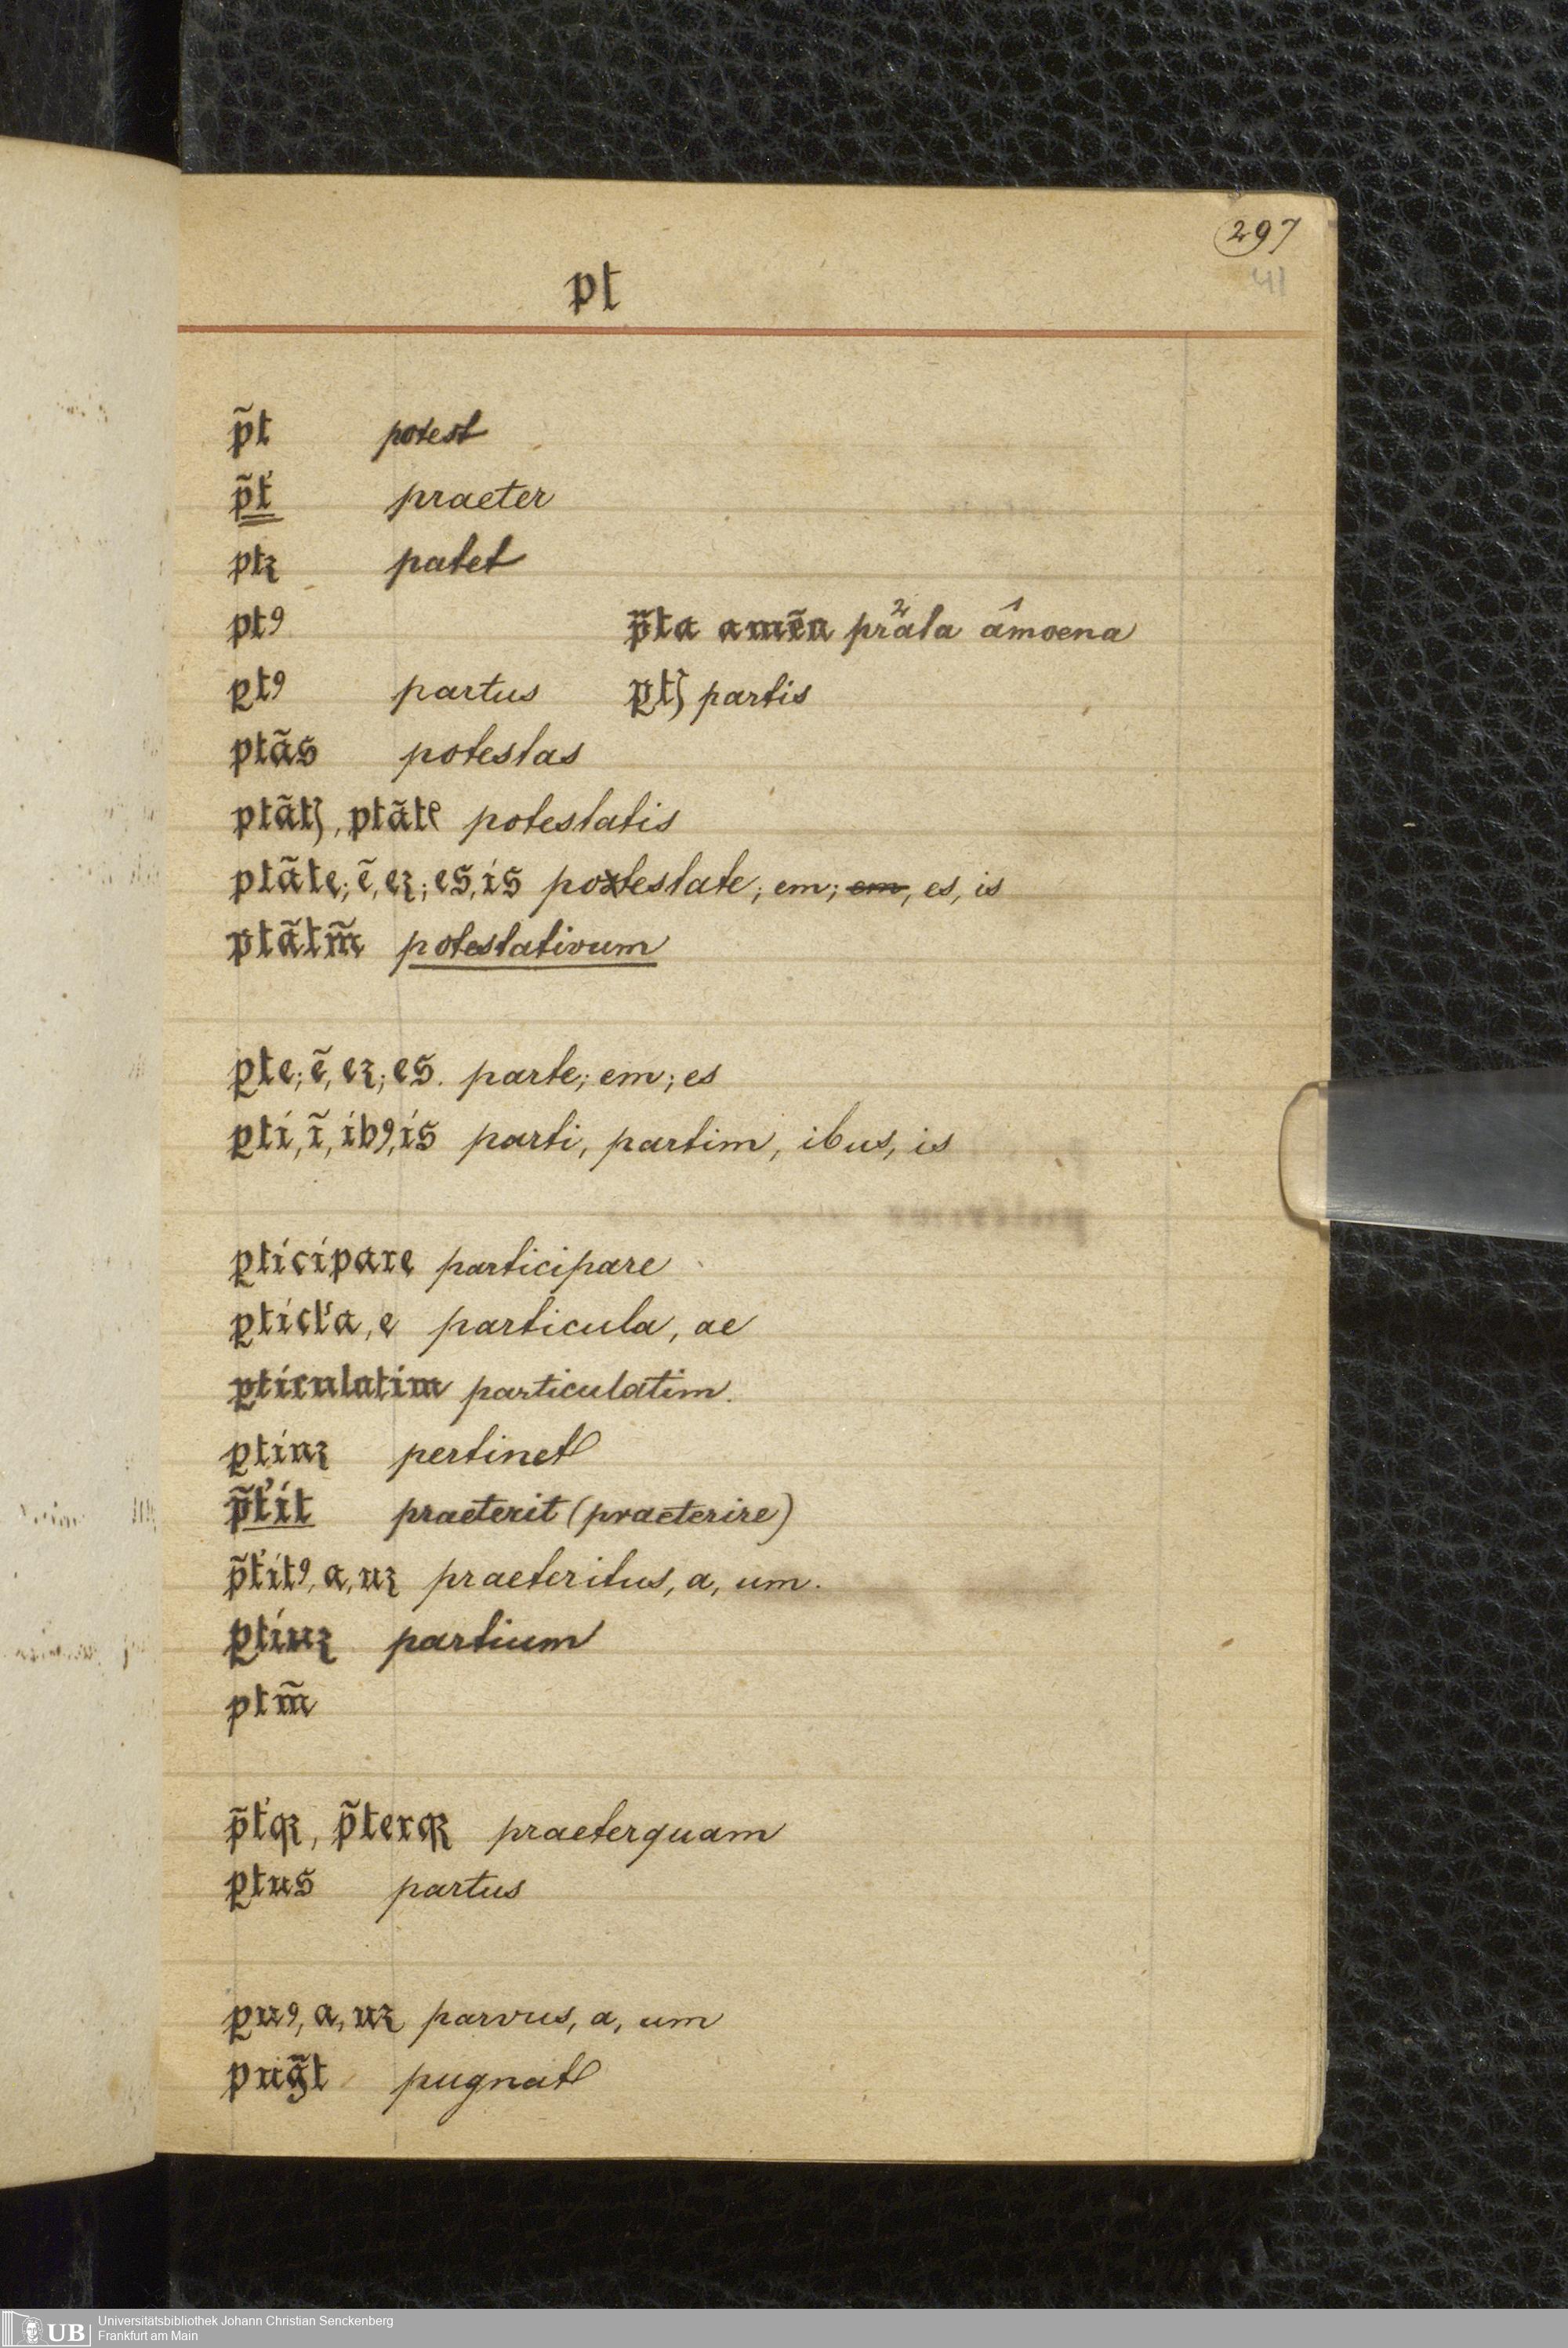 297
41
pt
p̃t potest
p̃t' praeter
ptꝫ patet
ptꝰ p̃ta amẽn präta amoena
ꝑtꝰ partus ꝑtꝭ partis
ptãs potestas
ptãtꝭ, ptãtꝭ potestatis
ptãte; ẽ, eꝫ; es, is potestate; em; em, es, is
ptãtm̃ potestativum
ꝑte; ẽ, eꝫ; es. parte; em; es
ꝑti, ĩ, ibꝰ, is parti, partim, ibus, is
ꝑticipare participare
ꝑticl'a, e particula, ae
ꝑticulatim particulatim.
ꝑtinꝫ pertinet
p̃t'it praeterit (praeterire)
p̃t'itꝰ, a, uꝫ praeteritus, a, um.
ꝑtiuꝫ partium
ptm̃
p̃t'qꝫ, p̃terqꝫ praeterquam
ꝑtus partus
ꝑuꝰ, a, uꝫ parvus, a, um
pug̃t pugnat
UB Universitätsbibliothek Johann Christian Senckenberg
Frankfurt am Main